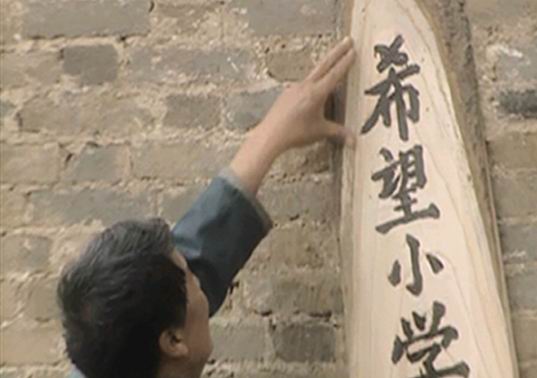 希望小学